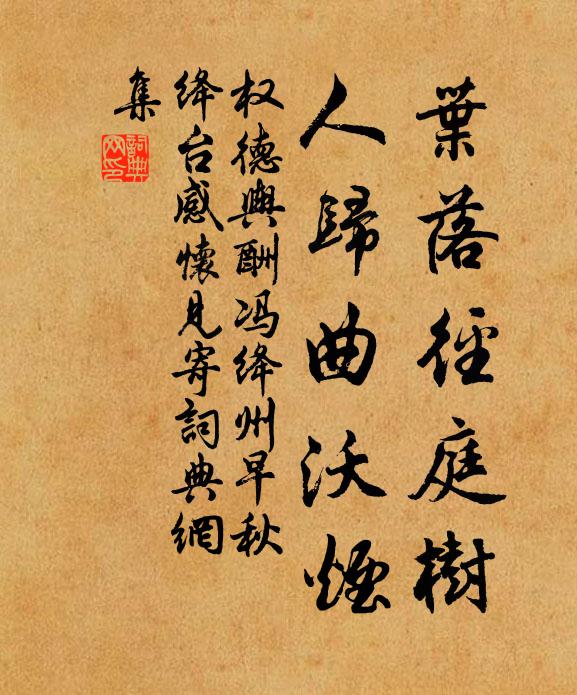 葉落徑庭樹
人歸曲沃煙
权德輿酬冯绛州早秋
绛台感懷見寄詞典網
集
詞典
网印